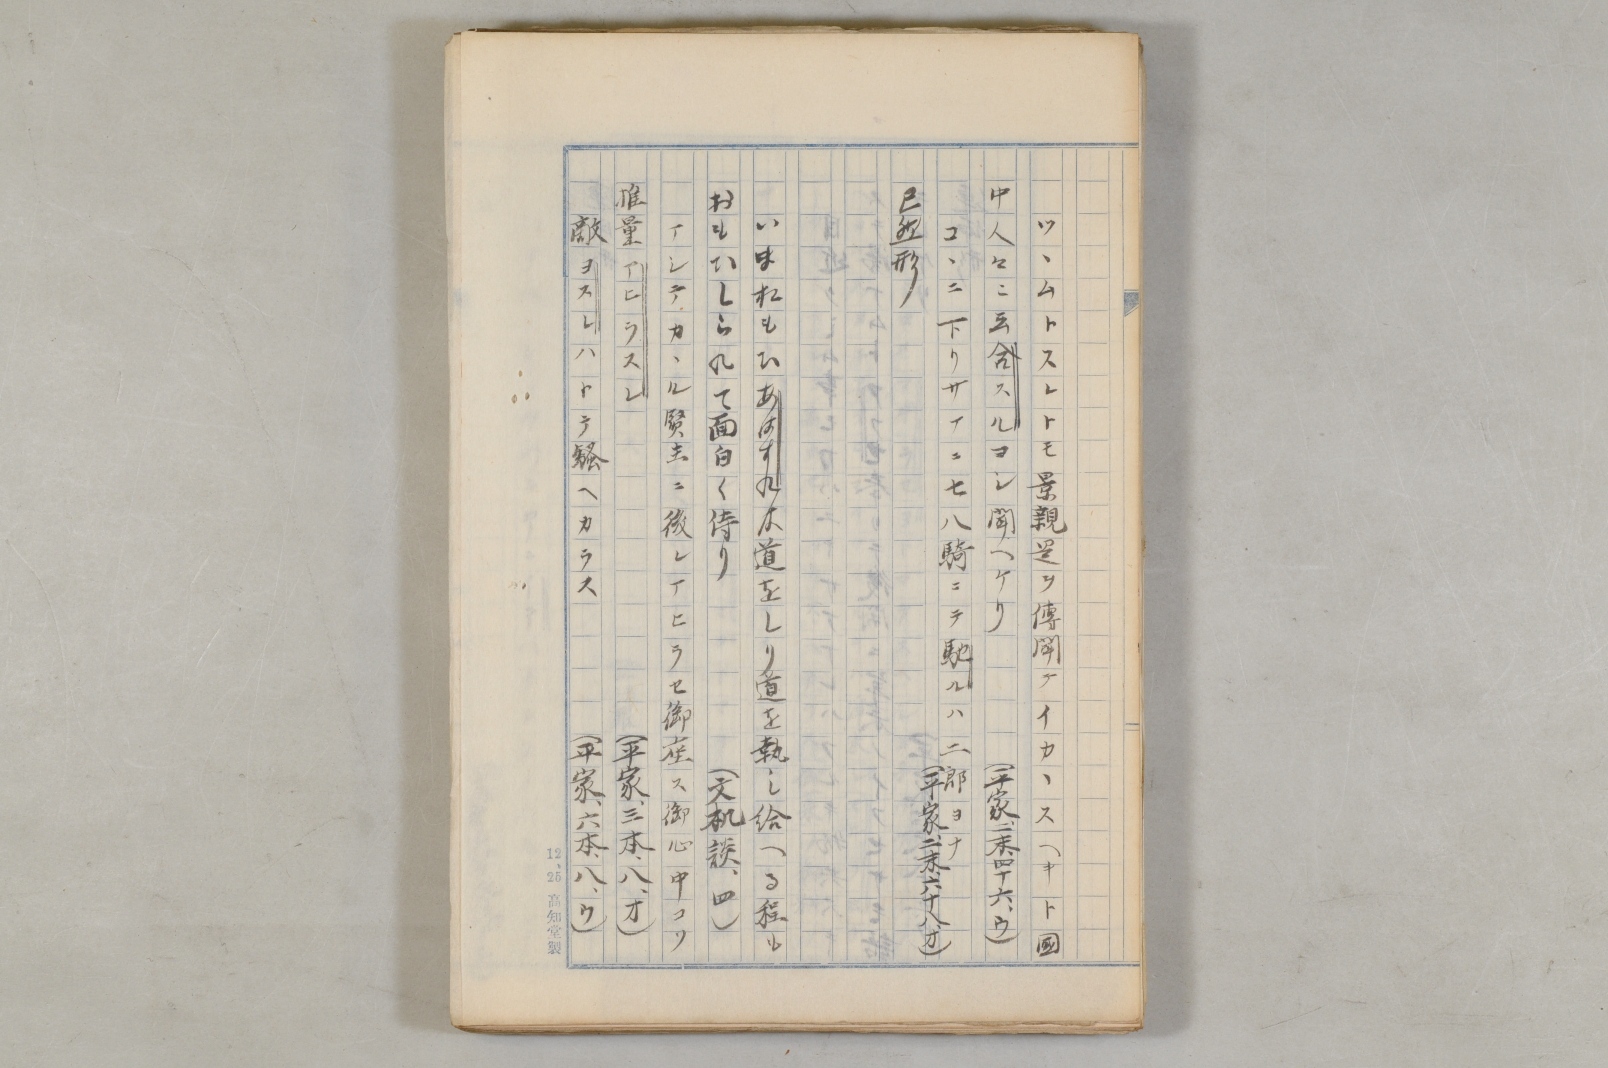 ツヽムトスレトモ景親是ヲ傳聞テイカヽスヘキト國
中人々ニ云合スルヨシ聞ヘケリ
(平家、二末、四十六、ウ)
コヽニ下リサマニ七八騎ニテ馳ルハ二郎ヨナ
(平家、二末、六十八オ)
已然形
いま於もひあはすれは道をしり道を執し給へる程も
おもひしられて面白く侍り
(文机談、四)
アシテカヽル賢主ニ後レアヒラセ御座ス御心中コソ
推量アヒラスレ
(平家、三本、八、オ)
敵ヨスレハトテ騒ヘカラス
(平家、六本、八、ウ)
12、25 高知堂製